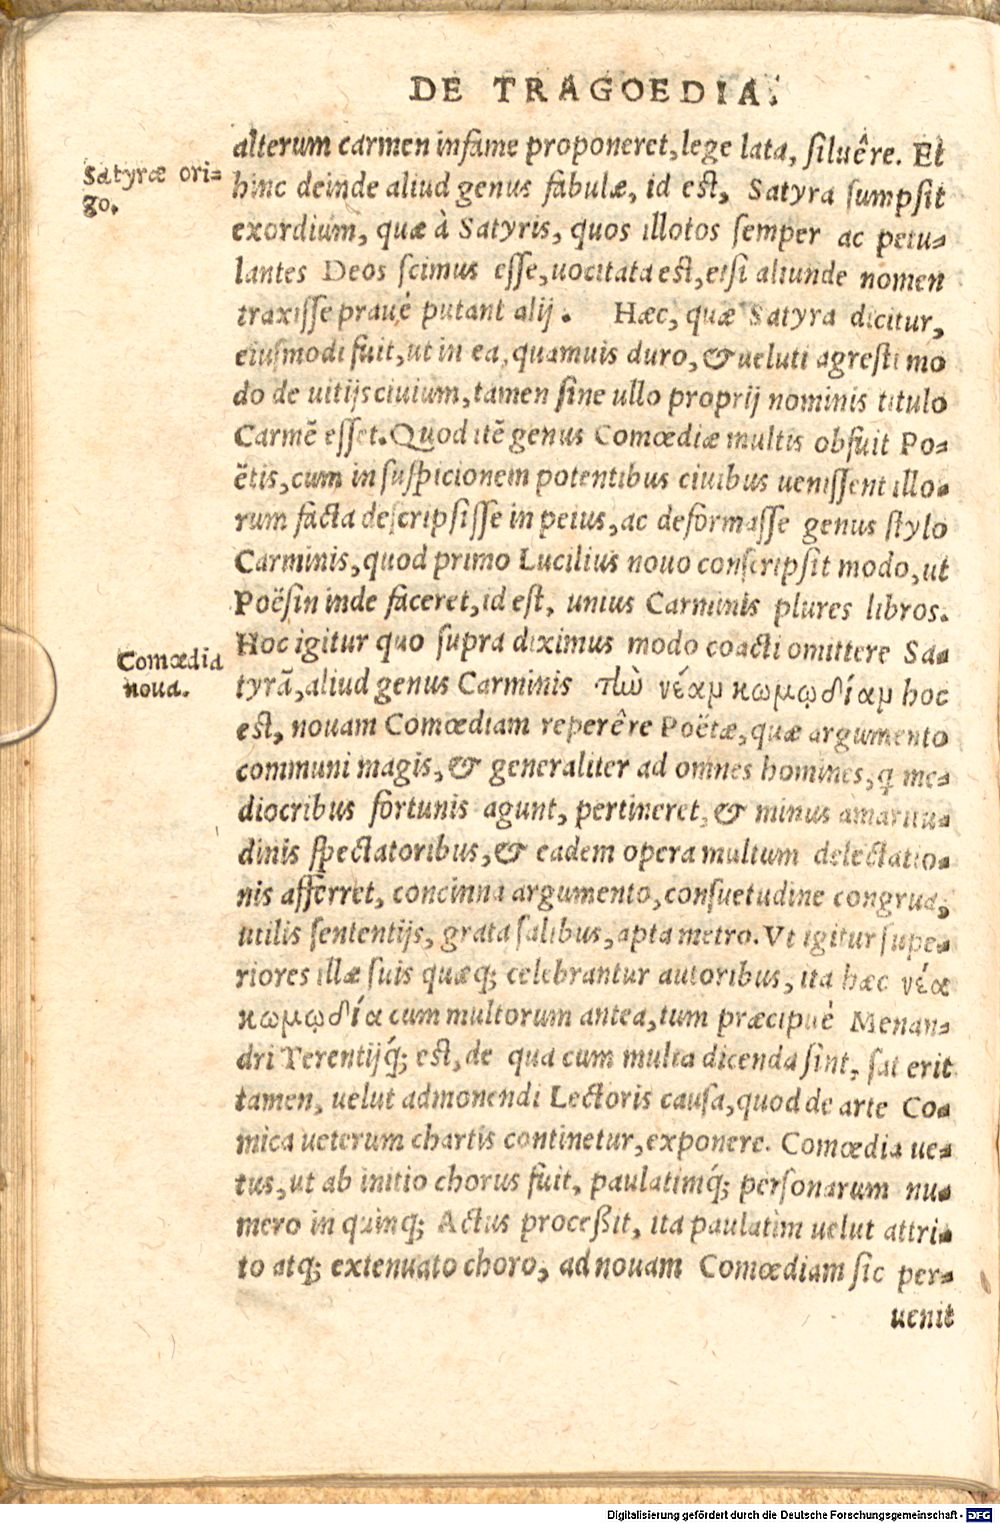 DE TRAGOEDIA.
alterum carmen infame proponeret, lege lata, siluêre. Et
Satyræ ori-
go.
hinc deinde aliud genus fabulæ, id est, Satyra sumpsit
exordium, quæ à Satyris, quos illotos semper ac petu-
lantes Deos scimus esse, uocitata est, etsi aliunde nomen
traxisse prauè putant alij. Hæc, quæ Satyra dicitur,
eiusmodi fuit, ut in ea, quamuis duro, & ueluti agresti mo
do de uitijs ciuium, tamen sine ullo proprij nominis titulo
Carmē esset. Quod itē genus Comœdiæ multis obfuit Po-
ëtis, cum in suspicionem potentibus ciuibus uenissent illo-
rum facta descripsisse in peius, ac deformasse genus stylo
Carminis, quod primo Lucilius nouo conscripsit modo, ut
Poësin inde faceret, id est, unius Carminis plures libros.
Hoc igitur quo supra diximus modo coacti omittere Sa-
Comœdia
noua.
tyrā, aliud genus Carminis τὴν νέαν κωμῳδίαν hoc
est, nouam Comœdiam reperêre Poëtæ, quæ argumento
communi magis, & generaliter ad omnes homines, q̃ me-
diocribus fortunis agunt, pertineret, & minus amaritu-
dinis spectatoribus, & eadem opera multum delectatio-
nis afferret, concinna argumento, consuetudine congrua,
utilis sententijs, grata salibus, apta metro. Vt igitur supe-
riores illæ suis quæq; celebrantur autoribus, ita hæc νέα
κωμῳδία cum multorum antea, tum præcipuè Menan-
dri Terentijq́; est, de qua cum multa dicenda sint, sat erit
tamen, uelut admonendi Lectoris causa, quod de arte Co-
mica ueterum chartis continetur, exponere. Comœdia ue-
tus, ut ab initio chorus fuit, paulatimq́; personarum nu-
mero in quinq; Actus proceßit, ita paulatim uelut attri-
to atq; extenuato choro, ad nouam Comœdiam sic per-
uenit
Digitalisierung gefördert durch die Deutsche Forschungsgemeinschaft - DFG